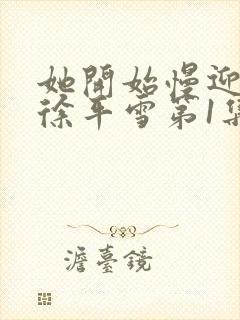 她開始慢迎
徐平雪第1集
澹臺鏡